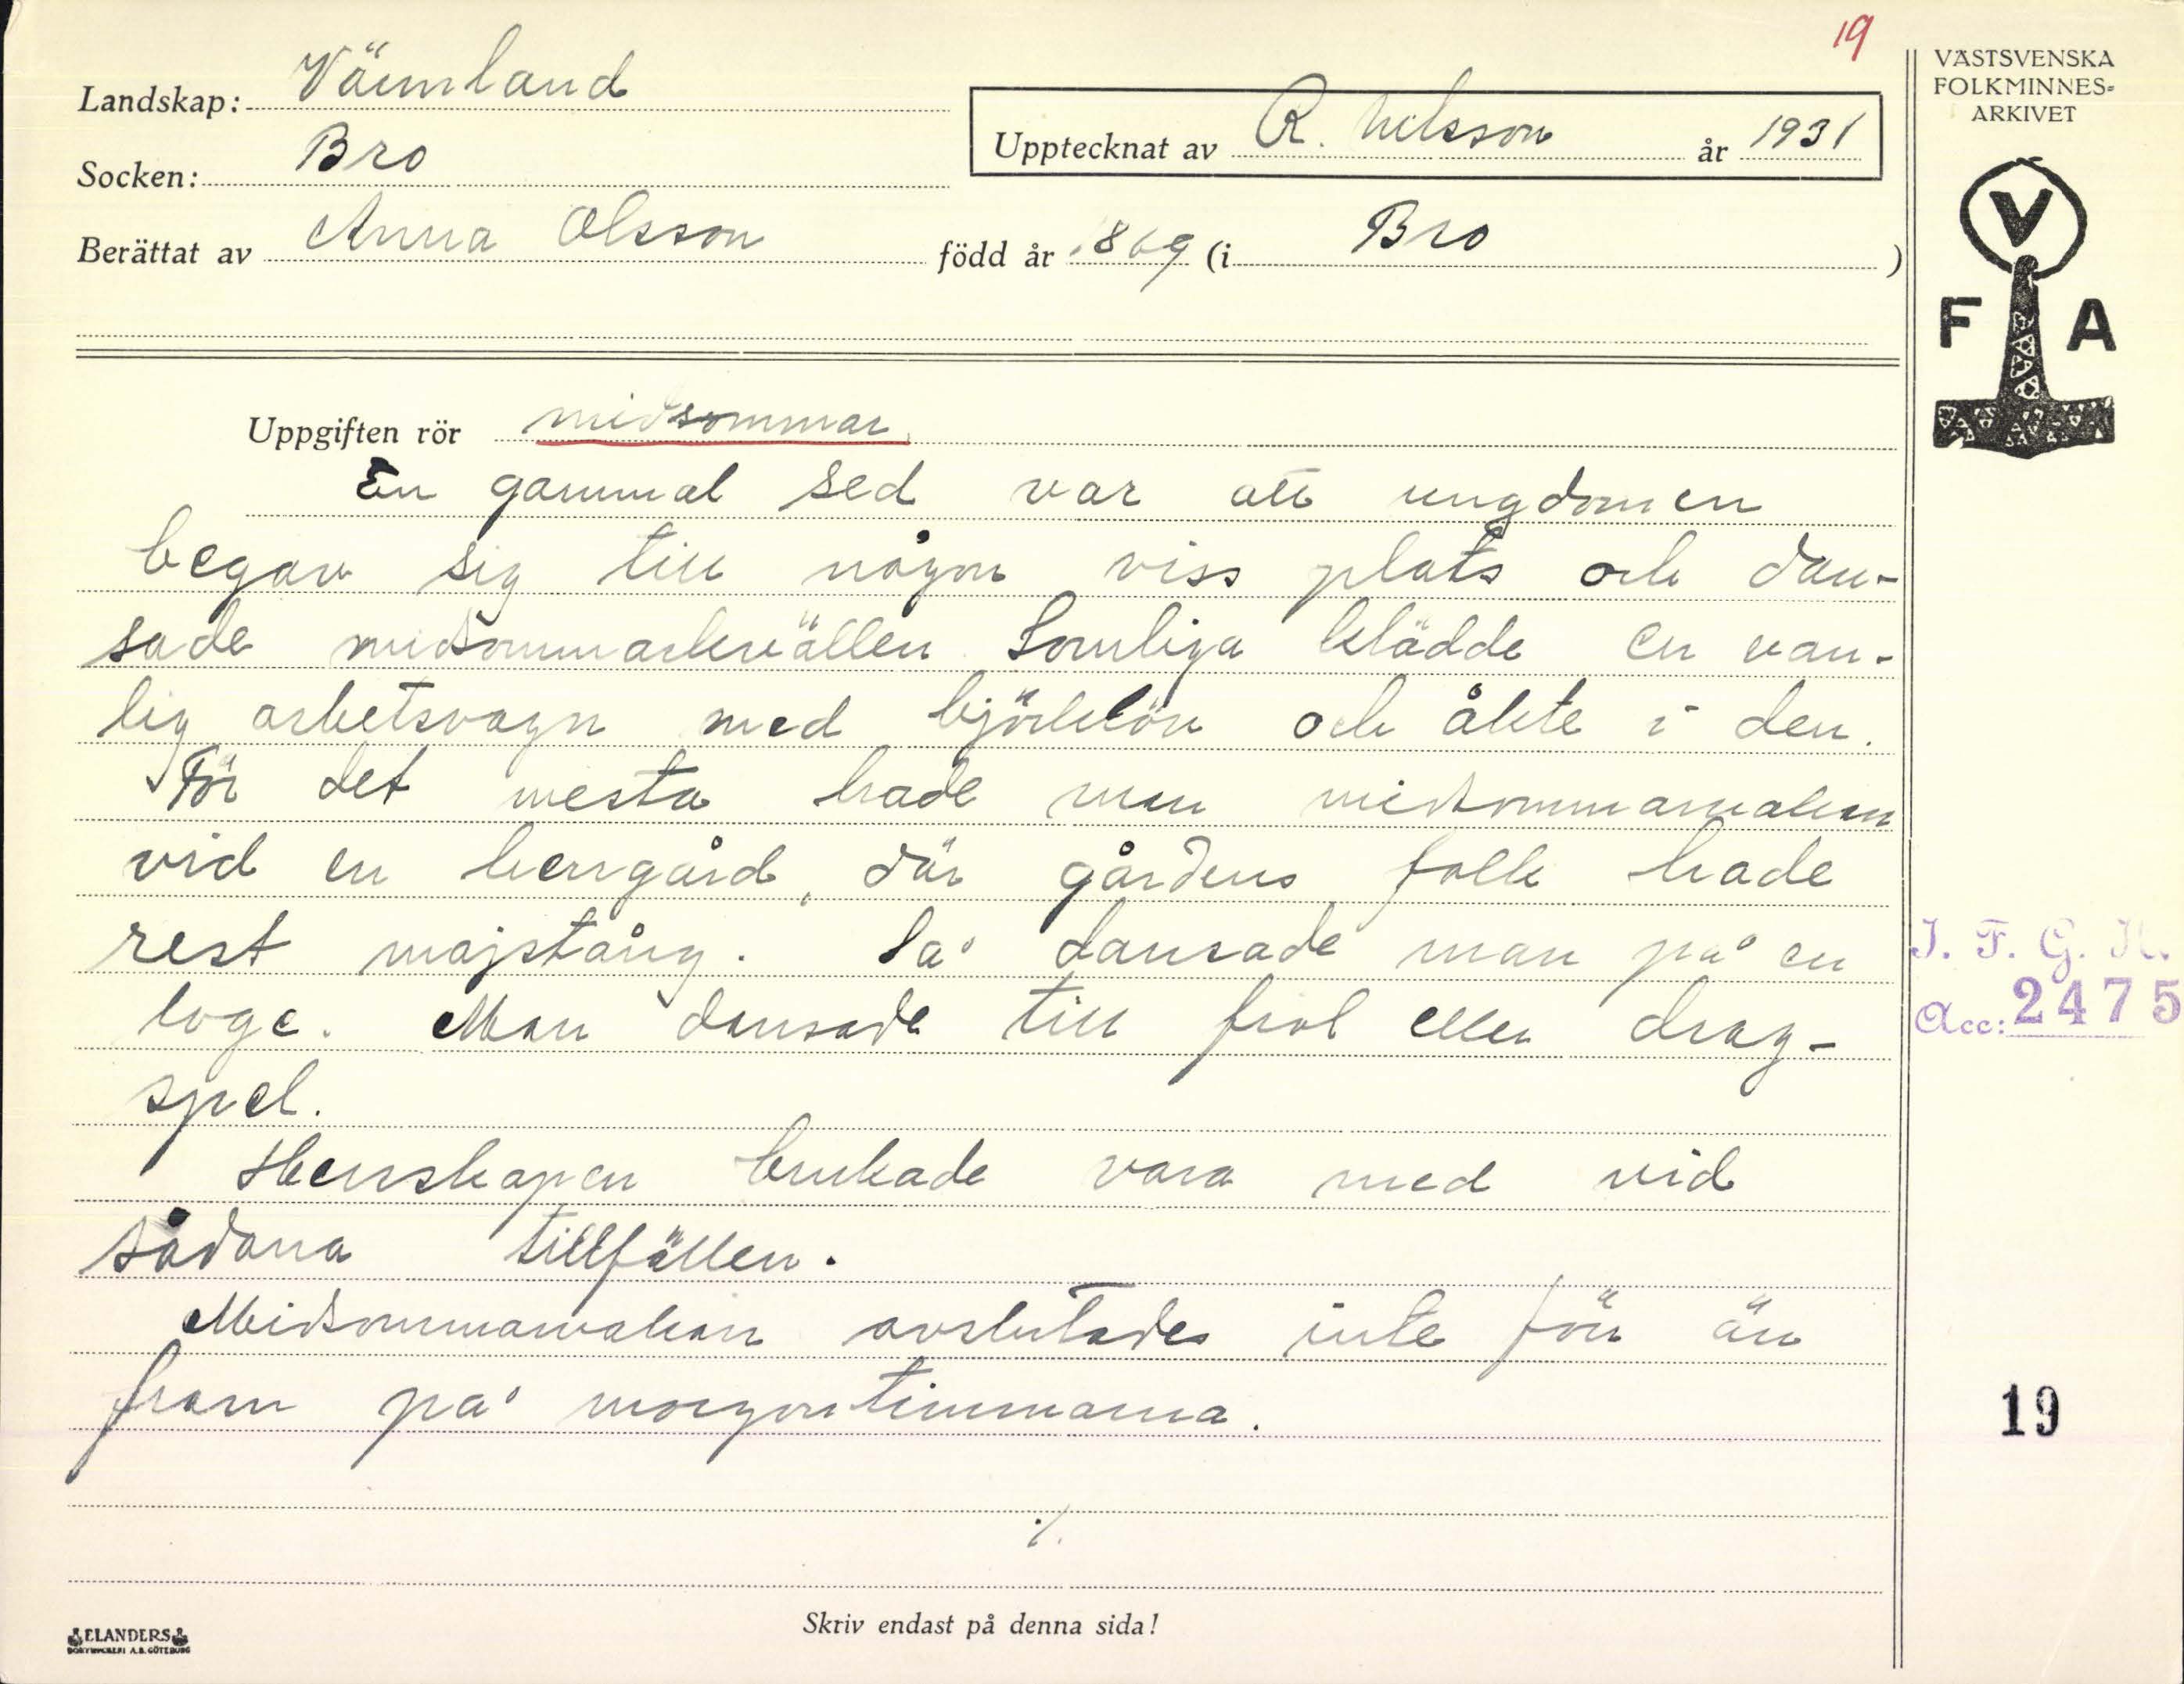 19
Landskap: Värmland
Socken: Bro
Upptecknat av R. Nilsson år 1931
Berättat av Anna Olsson född år 1869 (i Bro)
VÄSTSVENSKA
FOLKMINNES-
ARKIVET
V
F A
Uppgiften rör midsommar
En gammal sed var att ungdomen
begav sig till någon viss plats och dan-
sade midsommarkvällen. Somliga klädde en van-
lig arbetsvagn med björklöv och åkte i den.
För det mesta hade man midsommarvakan
vid en herrgård, där gårdens folk hade
rest majstång. Så dansade man på en
loge. Man dansade till fiol eller drag-
spel.
Herrskapen brukade vara med vid
sådana tillfällen.
Midsommarvakan avslutades inte förr än
fram på morgontimmarna.
./.
I. F. G. H.
Acc: 2475
19
Skriv endast på denna sida!
ELANDERS
BOKTRYCKERI A.B. GÖTEBORG